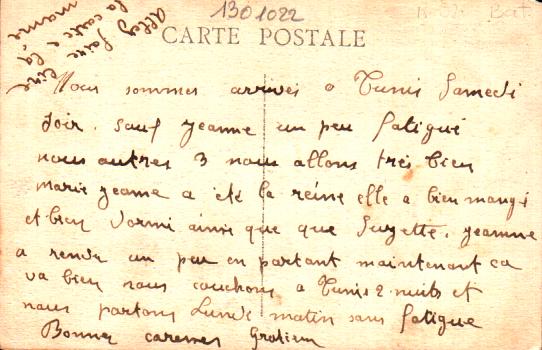 1301022
Allez faire
lire
la carte a la
mama
CARTE POSTALE
Nous sommes arrivés a Tunis Samedi
soir. sauf jeanne un peu fatigué
nous autres 3 nous allons très bien
marie jeanne a été la reine elle a bien mangé
et bien dormi ainsi que que Suzette. jeanne
a rendu un peu en partant maintenant ca
va bien nous couchons a Tunis 2 nuits et
nous partons Lundi matin sans fatigue
Bonnes caresses Gratien